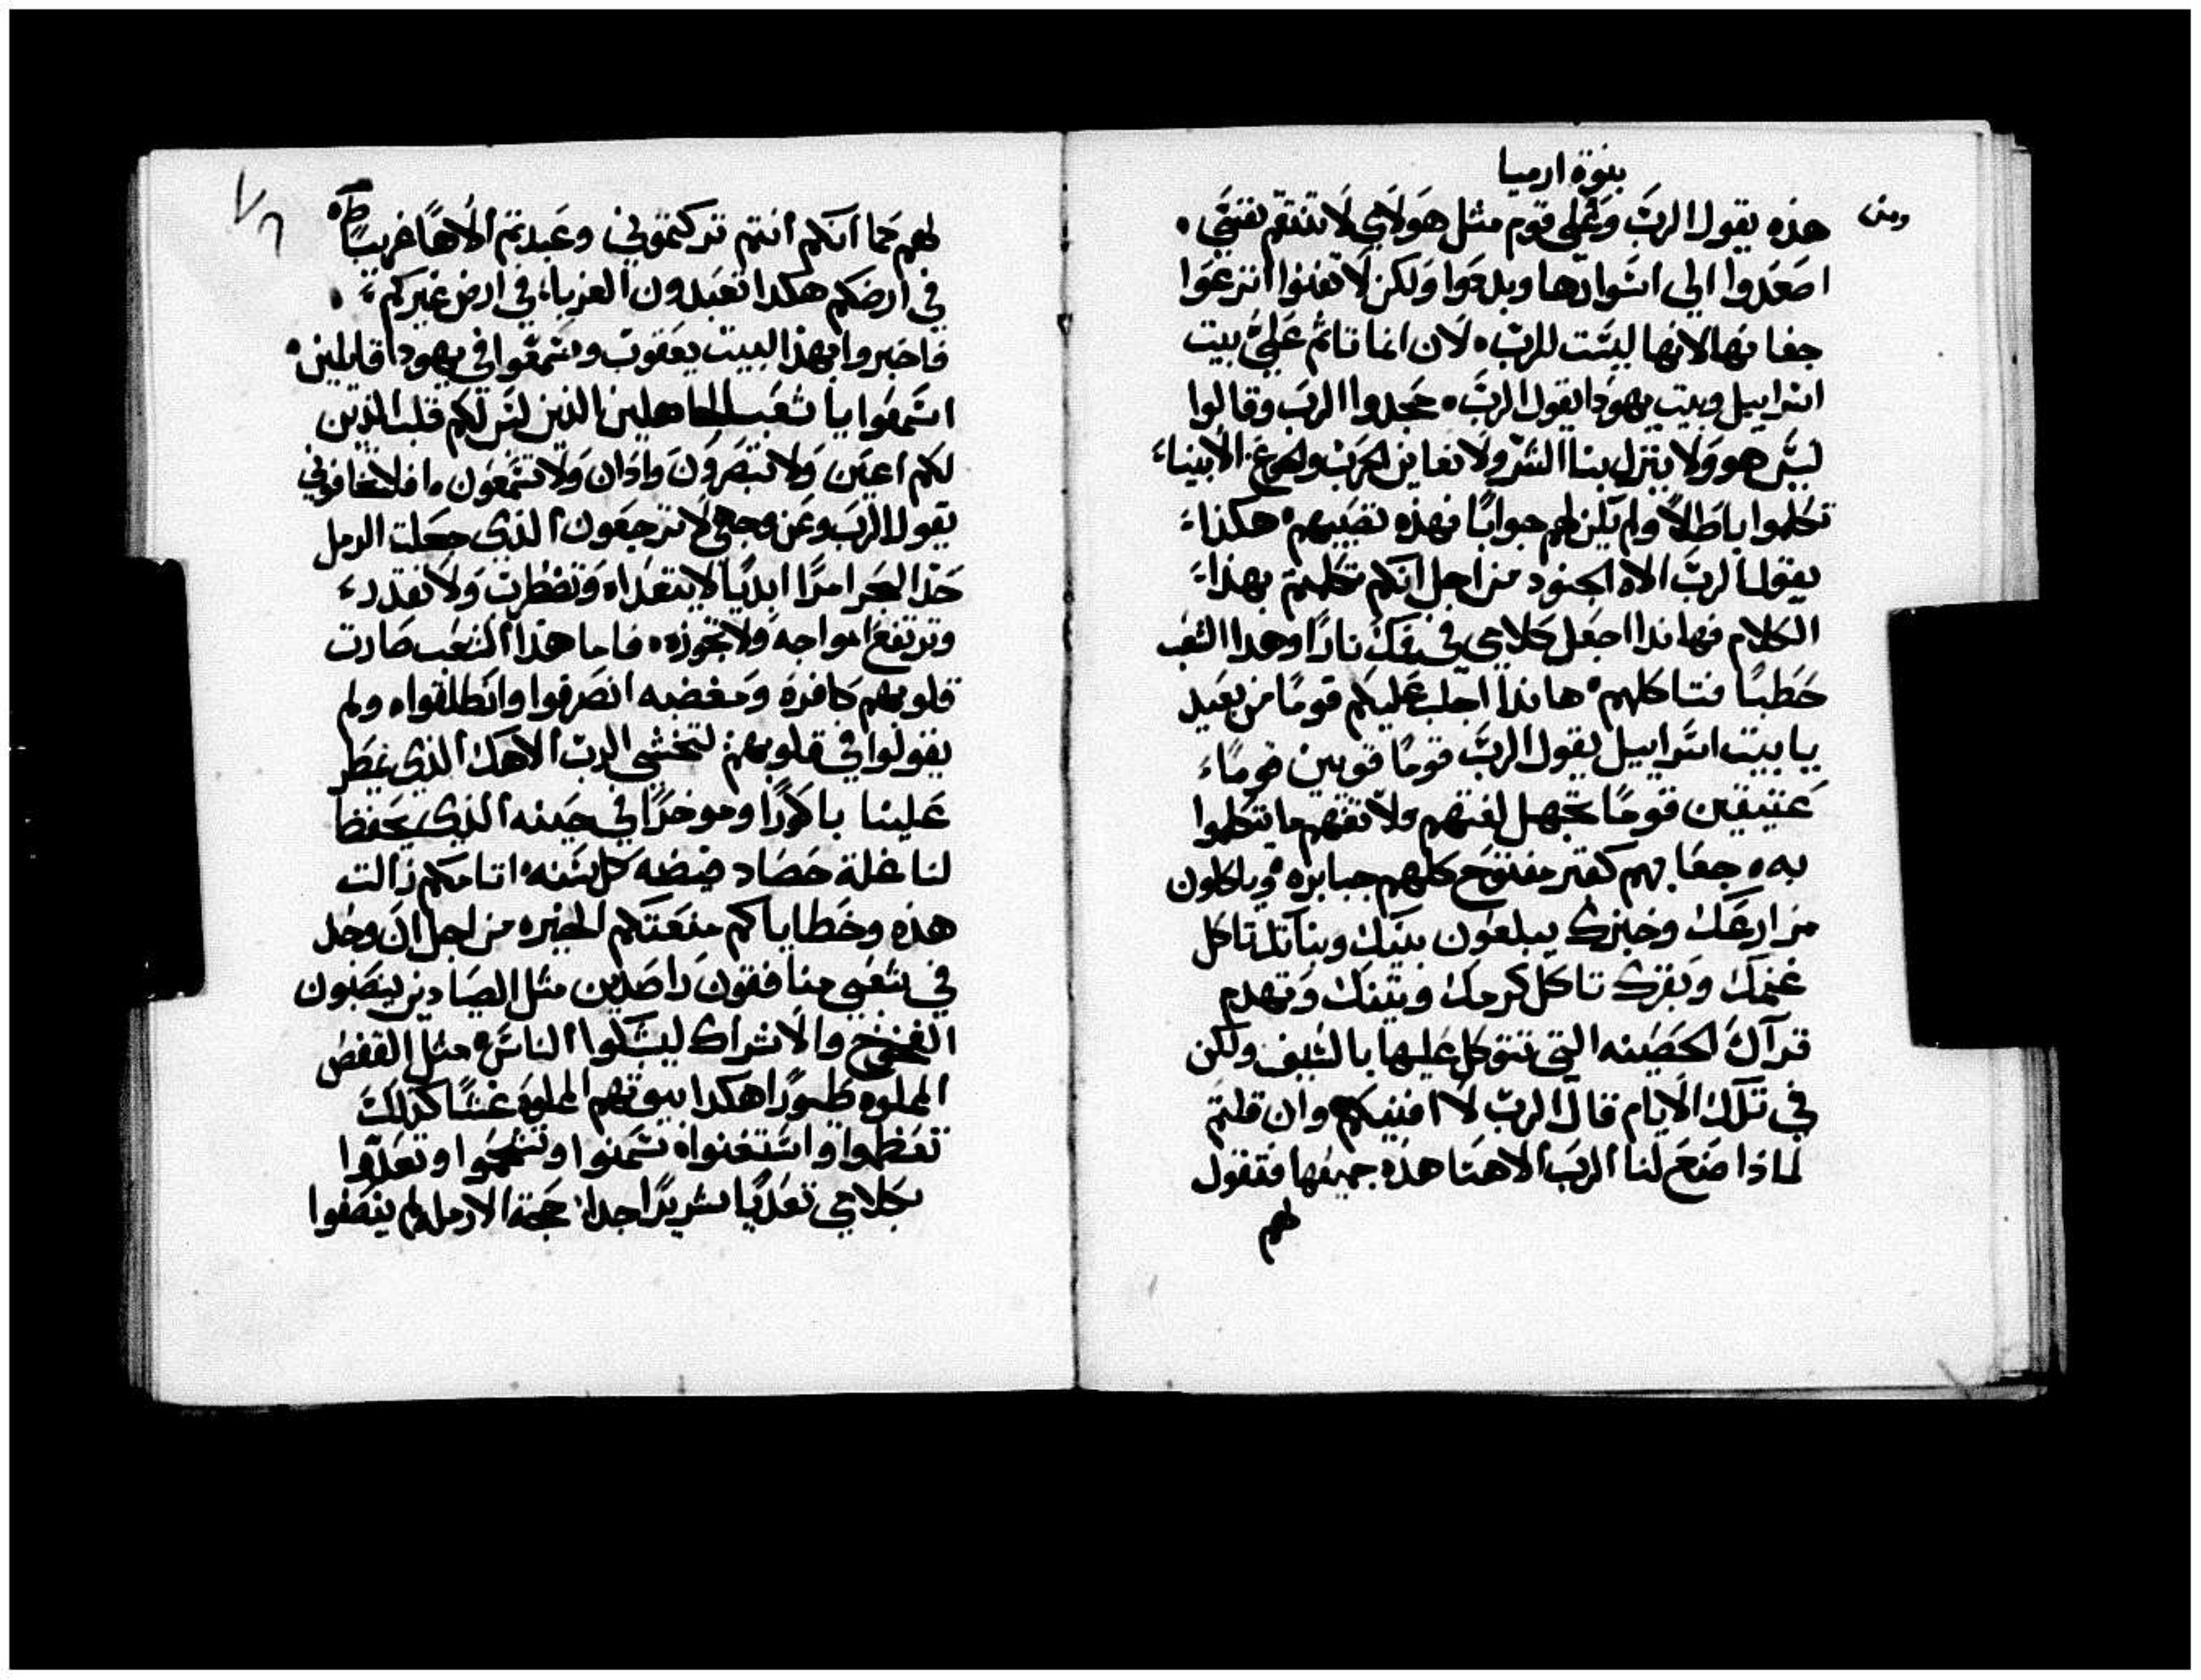 بنوة ارميا
هذه يقول الربّ وعلى قوم مثل هولاي لا تنتقم نفسي
اصعدوا الى اسوارها وبلدوا ولكن لا تفنوا انزعوا
جفانها لانها ليست للرب لان انما تاثم عليّ بيت
اسراييل وبيت يهودا يقول الربّ جحدوا الرب وقالوا
ليس هو ولا ينزل بنا الشر ولا نعاين الحرب والجوع الانبياء
تكلموا باطلاً ولم يكن لهم جوابًا فهذه تصيبهم هكذا
يقول الربّ الاه الجنود من اجل انكم تكلمتم بهذا
الكلام فهانذا اجعل كلامي في فمك نارًا وهدا الشعب
حطبًا فتاكلهم هانذا اجلب عليكم قومًا من بعيد
يا بيت اسراييل يقول الربّ قومًا قويين قومًا
عتيقين قومًا تجهل لغتهم ولا تفهم ما يتكلموا
به جعابهم كقبر مفتوح كلهم جبابره وياكلون
زرعك وخبزك يبلعون بنيك وبناتك تاكل
غنمك وبقرك تاكل كرمك وتينك وتهدم
قراك الحصينه التي تتوكل عليها بالسيف ولكن
في تلك الايام قال الربّ لا افنيكم وان قلتم
لماذا صنع لنا الرب الاهنا هذه جميعها فتقول
لهم
لهم كما انكم انتم تركتموني وعبدتم الاهًا غريبًا
في ارضكم هكدا تعبدون الغربا في ارض غيركم
فاخبروا بهذا لبيت يعقوب وسمعوا في يهودا قايلين
اسمعوا يا شعب الجاهلين الذين ليس لكم قلب الذين
لكم اعين ولا تبصرون واذان ولا تسمعون افلا تخافوني
يقول الرب وعن وجهي لا ترجعون الذي جعلت الرمل
حد البحر امرًا ابديًا لا يتعداه وتضطرب ولا تقدر
وترتفع امواجه ولا تجوزه فاما هذا الشعب صارت
قلوبهم كافره ومغضبه انصرفوا وانطلقوا ولم
يقولوا في قلوبهم لنخشى الرب الاهك الذي يمطر
علينا باكورًا وموخرًا في حينه الذي يحفظ
لنا غلة حصاد حنطه كل سنه اثامكم زالت
هذه وخطاياكم منعتكم الخيره من اجل ان وجد
في شعبي منافقون راصدين مثل الصيادين ينصبون
الفخوخ والاشراك ليمسكوا الناس مثل القفص
المملوه طيورًا هكدا بيوتهم المملوه غشًا كذلك
تعظموا واستغنوا سمنوا وتلحموا وتعدّوا
بكلامي تعديًا شريرًا جدا حجة الارمله لم ينصفوا